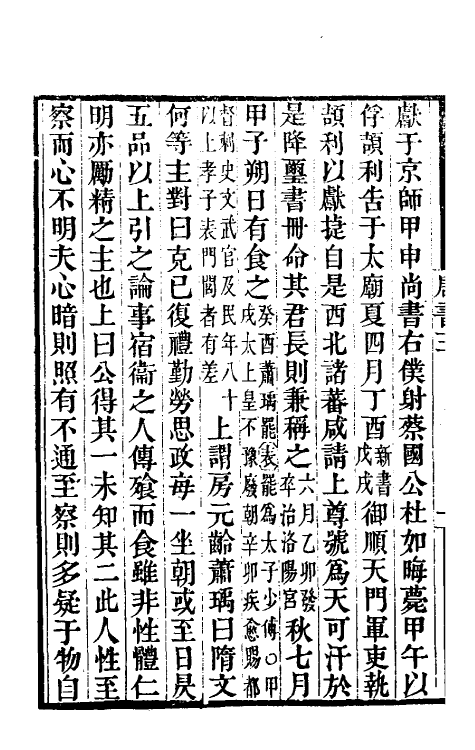 獻于京師甲申尚書右僕射蔡國公杜如晦薨甲午以
俘頡利告于太廟夏四月丁酉新書戊戌御順天門軍吏執
頡利以獻捷自是西北諸蕃咸請上尊號爲天可汗於
是降璽書冊命其君長則兼稱之六月乙卯發卒治洛陽宮秋七月
甲子朔日有食之癸酉蕭瑀罷表罷爲太子少傅〇甲戌太上皇不豫廢朝辛卯疾愈賜都
督刺史文武官及民年八十以上孝子表門閭者有差上謂房元齡蕭瑀曰隋文
何等主對曰克已復禮勤勞思政每一坐朝或至日昃
五品以上引之論事宿衞之人傳飱而食雖非性體仁
明亦勵精之主也上曰公得其一未知其二此人性至
察而心不明夫心暗則照有不通至察則多疑于物自